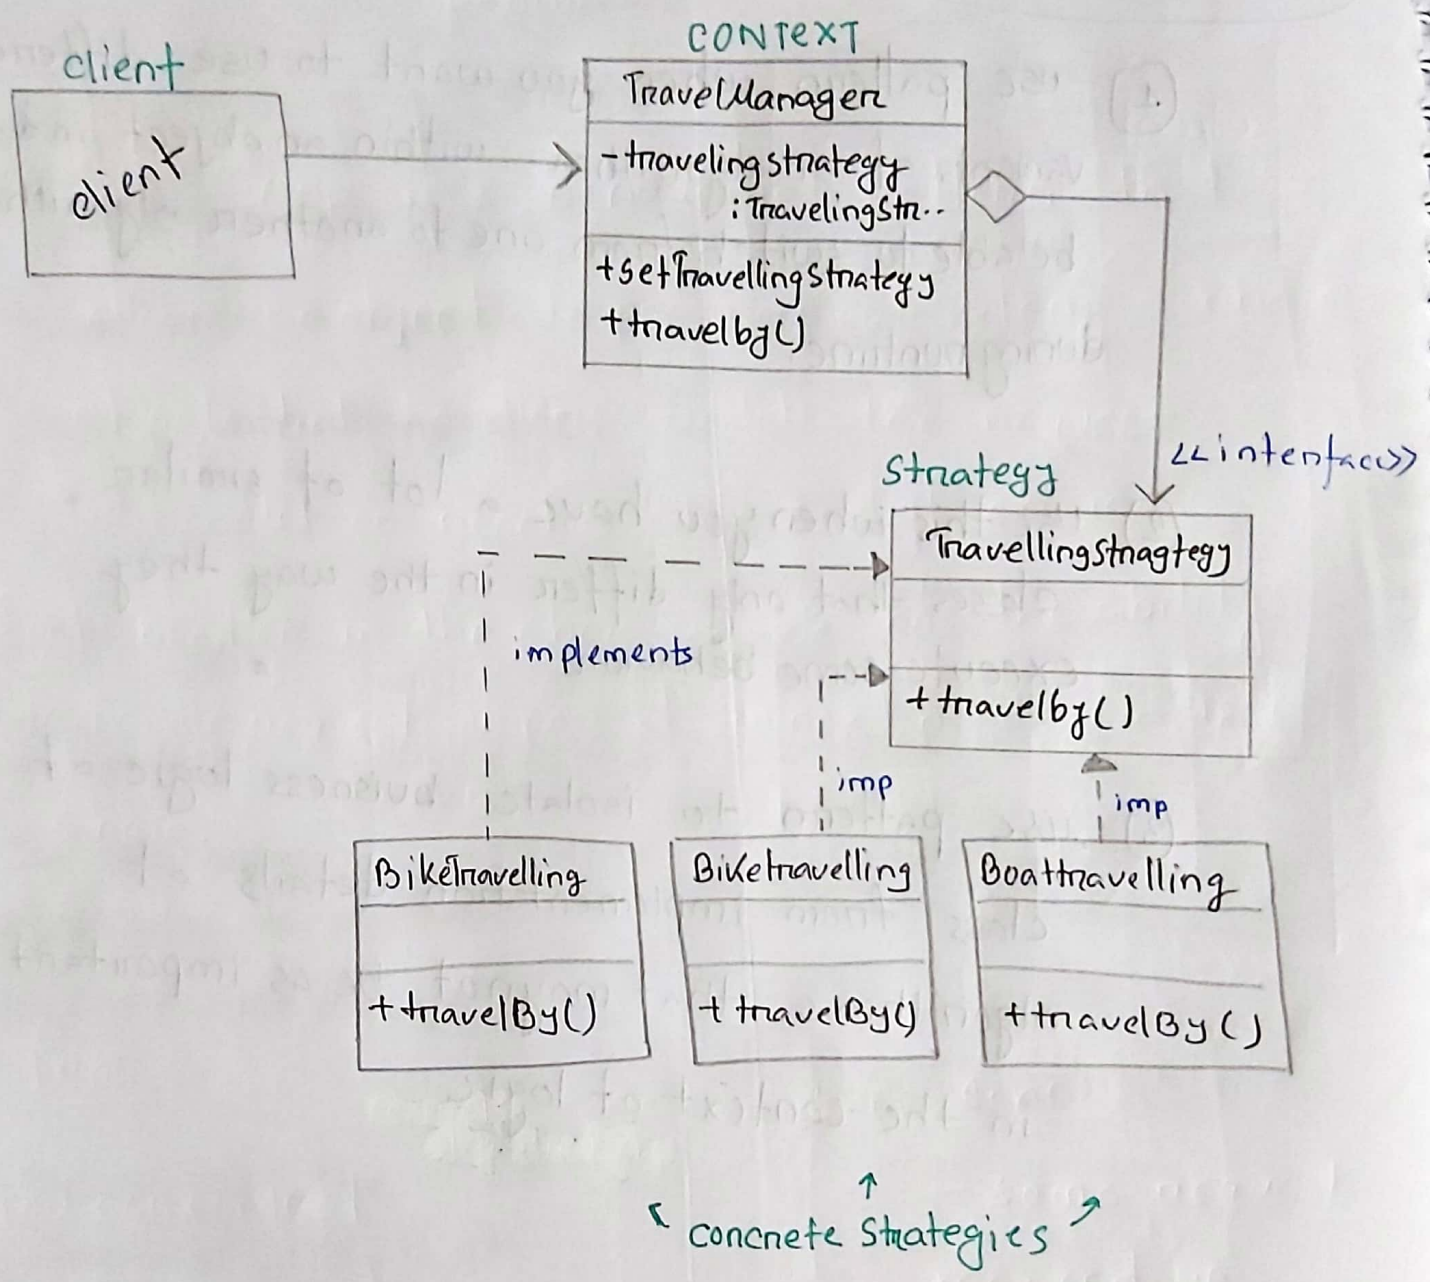 client
client
CONTEXT
TravelManager
-travelingstrategy
:TravelingStr..
+setTravellingStrategy
+travelby()
<<interface>>
Strategy
TravellingStragtegy
+travelby()
implements
imp
imp
BikeTravelling
+travelBy()
Biketravelling
+travelBy()
Boattravelling
+travelBy()
concrete Strategies